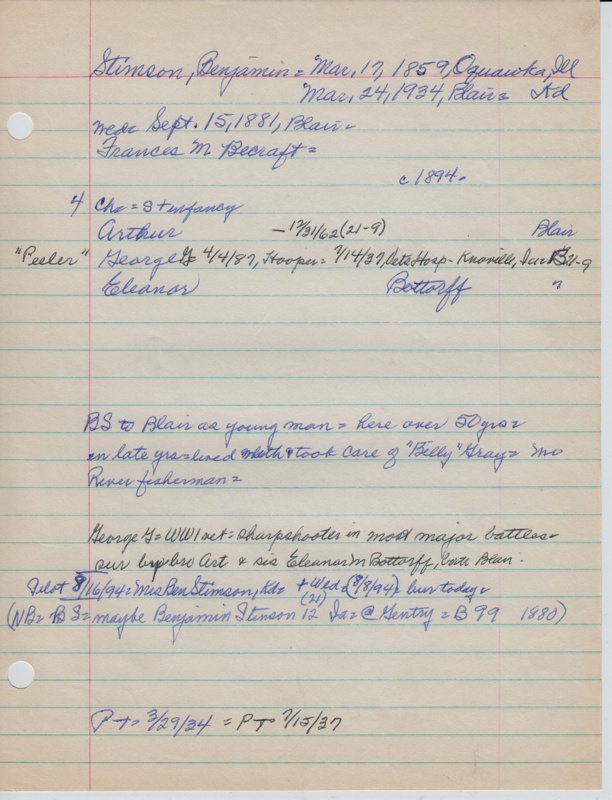 Stimson, Benjamin = Mar, 17, 1859, Oquawka, Ill
Mar, 24, 1934, Blair = Kd
wed = Sept. 15, 1881, Blair =
Frances M Becraft =
c 1894.
4 Ch = S + infancy
Arthur - 12/31/62 (21-9) Blair
"Peeler" George G = 4/4/87, Hooper = 7/14/37, Vets Hosp - Knoxville, Ia = B 21-9
Eleanor Bottorff "
BS to Blair as young man = here over 50 yrs =
in late yrs = lived with & took care of "Billy" Gray = Mo
River fisherman =
George G = WW1 vet = sharpshooter in most major battles =
sur by bro Art & sis Eleanor M Bottorff, both Blair.
Pilot 8/16/94 = Mrs Ben Stimson, Kd = + Wed = (8/8/94) = bur today =
(21)
(NB = BS = maybe Benjamin Stinson 12 Ia = @ Gentry = B 99 1880)
P T = 3/29/34 = P T 7/15/37